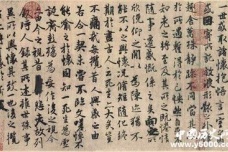 世或取諸懷抱悟言一室
因寄所託放浪形骸
趣舍萬殊靜躁不同
於所遇蹔得於己
知老之將至及其所之既惓
隨事遷感慨係之矣向之
欣俛仰之閒以為陳迹猶不
能不以之興懷況脩短隨化終
期於盡古人云死生亦大矣豈
不痛哉每攬昔人興感之由
若合一契未嘗不臨文嗟悼不
能喻之於懷固知一死生為虛
誕齊彭殤為妄作後之視今
亦由今之視昔悲夫故列
敘時人錄其所述雖世殊事
異所以興懷其致一也後之攬
中国历史网
www.y5000.com